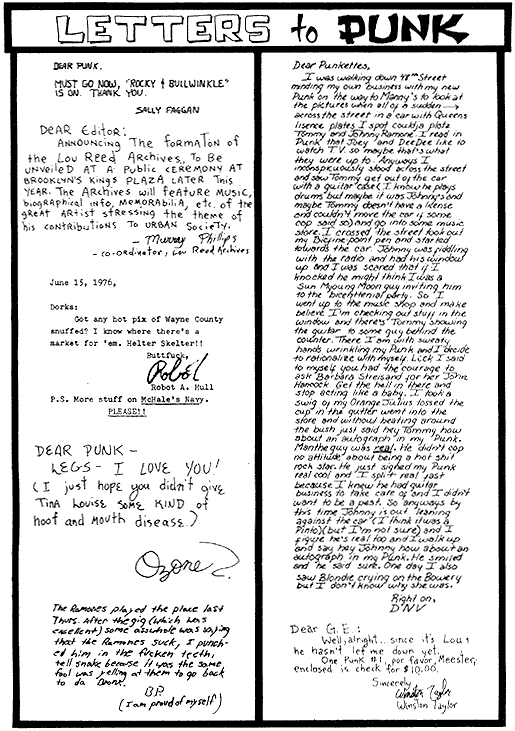 LETTERS to PUNK
DEAR PUNK.
MUST GO NOW, "ROCKY & BULLWINKLE"
IS ON. THANK YOU.
SALLY FAGGAN
DEAR Editor:
ANNOUNCING The formaTon of
the Lou Reed Archives. To Be
unveiled at a Public Ceremony at
BROOKLYN'S KINGS PLAZA LATER THIS
YEAR. The Archives will feature MUSIC,
biographical info, MEMORABILIA, etc. of the
great ARTIST STRESSING The theme of
his contributions To URBAN Society.
- Murray Phillips
- co-ordinator, Lou Reed Archives
June 15, 1976,
Dorks:
Got any hot pix of Wayne County
snuffed? I know where there's a
market for 'em. Helter Skelter!!
Buttfuck,
Robot
Robot A. Hull
P.S. More stuff on McHale's Navy.
PLEASE!!
DEAR PUNK -
LEGS - I LOVE YOU!
(I just hope you didn't give
Tina Louise some KIND of
hoof and mouth disease.)
Ozone
The Ramones played the place last
Thurs. After the gig (which was
excellent) some asswhole was saying
that the Ramones suck, I punch-
ed him in the fucken teeth,
tell snake because it was the same
fool was yelling at them to go back
to da Bronx.
B.P.
(I am proud of myself)
Dear Punkettes,
I was walking down 48th Street
minding my own business with my new
Punk on the way to Manny's to look at
the pictures when all of a sudden →
across the street in a car with Queens
lisence plates I spot couldja plotz
Tommy and Johnny Ramone. I read in
Punk that Joey and DeeDee like to
watch T.V. so maybe that's what
they were up to. Anyways I
inconspicuously stood across the street
and saw Tommy get out of the car
with a guitar case (I know he plays
drums but maybe it was Johnny's and
maybe Tommy doesn't have a license
and couldn't move the car if some
cop said so) and go into some music
store. I crossed the street took out
my Bicfine point pen and started
towards the car. Johnny was fiddling
with the radio and had his window
up and I was scared that if I
knocked he might think I was a
Sun Myoung Moon guy inviting him
to the bicentenial party. So I
went up to the music shop and make
believe I'm checking out stuff in the
window and there's Tommy showing
the guitar to some guy behind the
counter. There I am with sweaty
hands wrinkling my Punk and I decide
to rationalize with myself. Lick I said
to myself you had the courage to
ask Barbara Streisand for her John
Hancock. Get the hell in there and
stop acting like a baby. I took a
swig of my Orange Julius tossed the
cup in the gutter went into the
store and without beating around
the bush just said hey Tommy how
about an autograph in my Punk.
Man the guy was real. He didn't cop
no attitude about being a hot shit
rock star. He just signed my Punk
real cool and I split real fast
because I knew he had guitar
business to take care of and I didn't
want to be a pest. So anyways by
this time Johnny is out leaning
against the car (I think it was a
Pinto) (but I'm not sure) and I
figure he's real too and I walk up
and say hey Johnny how about an
autograph in my Punk. He smiled
and he said sure. One day I also
saw Blondie crying on the Bowery
but I don't know why she was.
Right on,
D'NV
Dear G.E:
Well, alright... since it's Lou &
he hasn't let me down yet.
One Punk #1, por favor, Meester,
enclosed is check for $10.00.
Sincerely
Winston Taylor
Winston Taylor